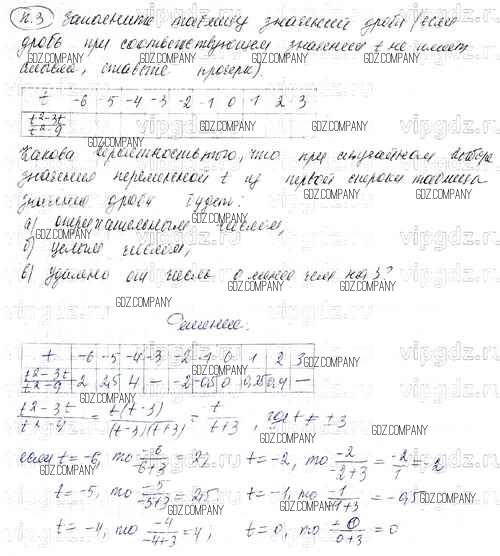 п.3 Заполните таблицу значений дроби (если
дробь при соответствующем значении t не имеет
смысла, ставьте прочерк).
t -6 -5 -4 -3 -2 -1 0 1 2 3
t²-3t
t²-9
Какова вероятность того, что при случайном выборе
значения переменной t из первой строки таблицы
значение дроби будет:
а) отрицательным числом,
б) целым числом,
в) удалено от числа 0 менее чем на 3?
Решение:
t -6 -5 -4 -3 -2 -1 0 1 2 3
t²-3t
t²-9 2 2,5 4 — -2 -0,5 0 0,25 0,4 —
t²-3t / t²-9 = t(t-3) / (t-3)(t+3) = t / t+3, где t ≠ ±3
если t=-6, то -6 / -6+3 = 2; t=-2, то -2 / -2+3 = -2 / 1 = -2
t=-5, то -5 / -5+3 = 2,5 t=-1, то -1 / -1+3 = -0,5
t=-4, то -4 / -4+3 = 4; t=0, то 0 / 0+3 = 0
GDZ.COMPANY
vipgdz.ru